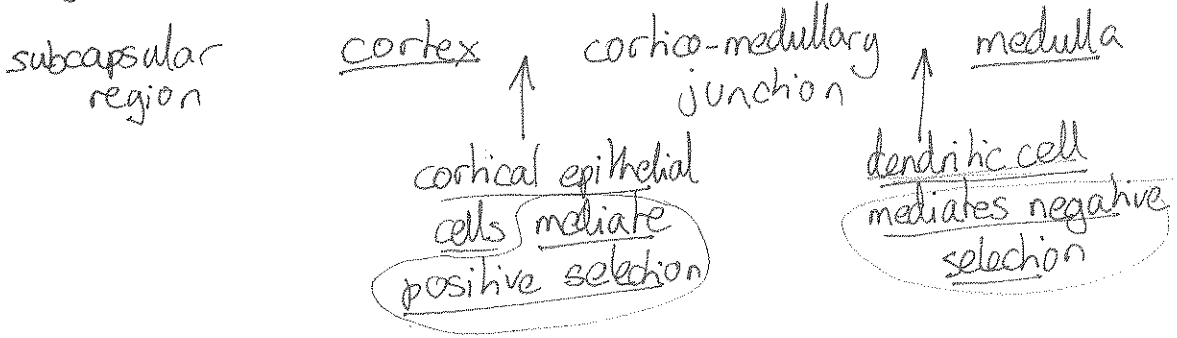 subcapsular cortex cortico-medullary medulla
region junction
cortical epithelial
cells mediate
positive selection
dendritic cell
mediates negative
selection